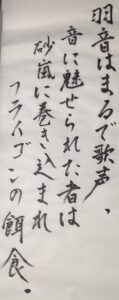 羽音はまるで歌声、
音に魅せられた者は
砂嵐に巻き込まれ
フライゴンの餌食。